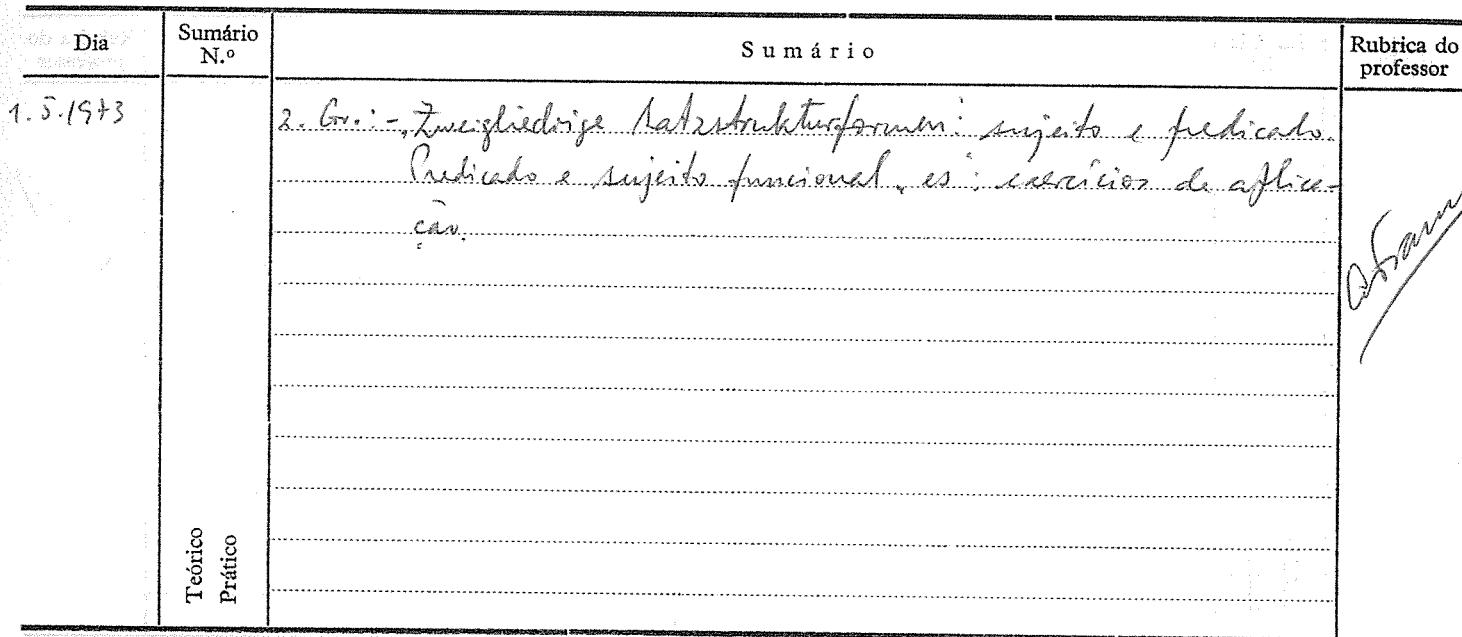 Dia
Sumário
N.º
Sumário
Rubrica do
professor
1.5.1973
2. Gr.: - Zweigliedrige Satzstrukturformen: sujeito e predicado.
Predicado e sujeito funcional "es": exercícios de aplica-
ção.
Teórico
Prático